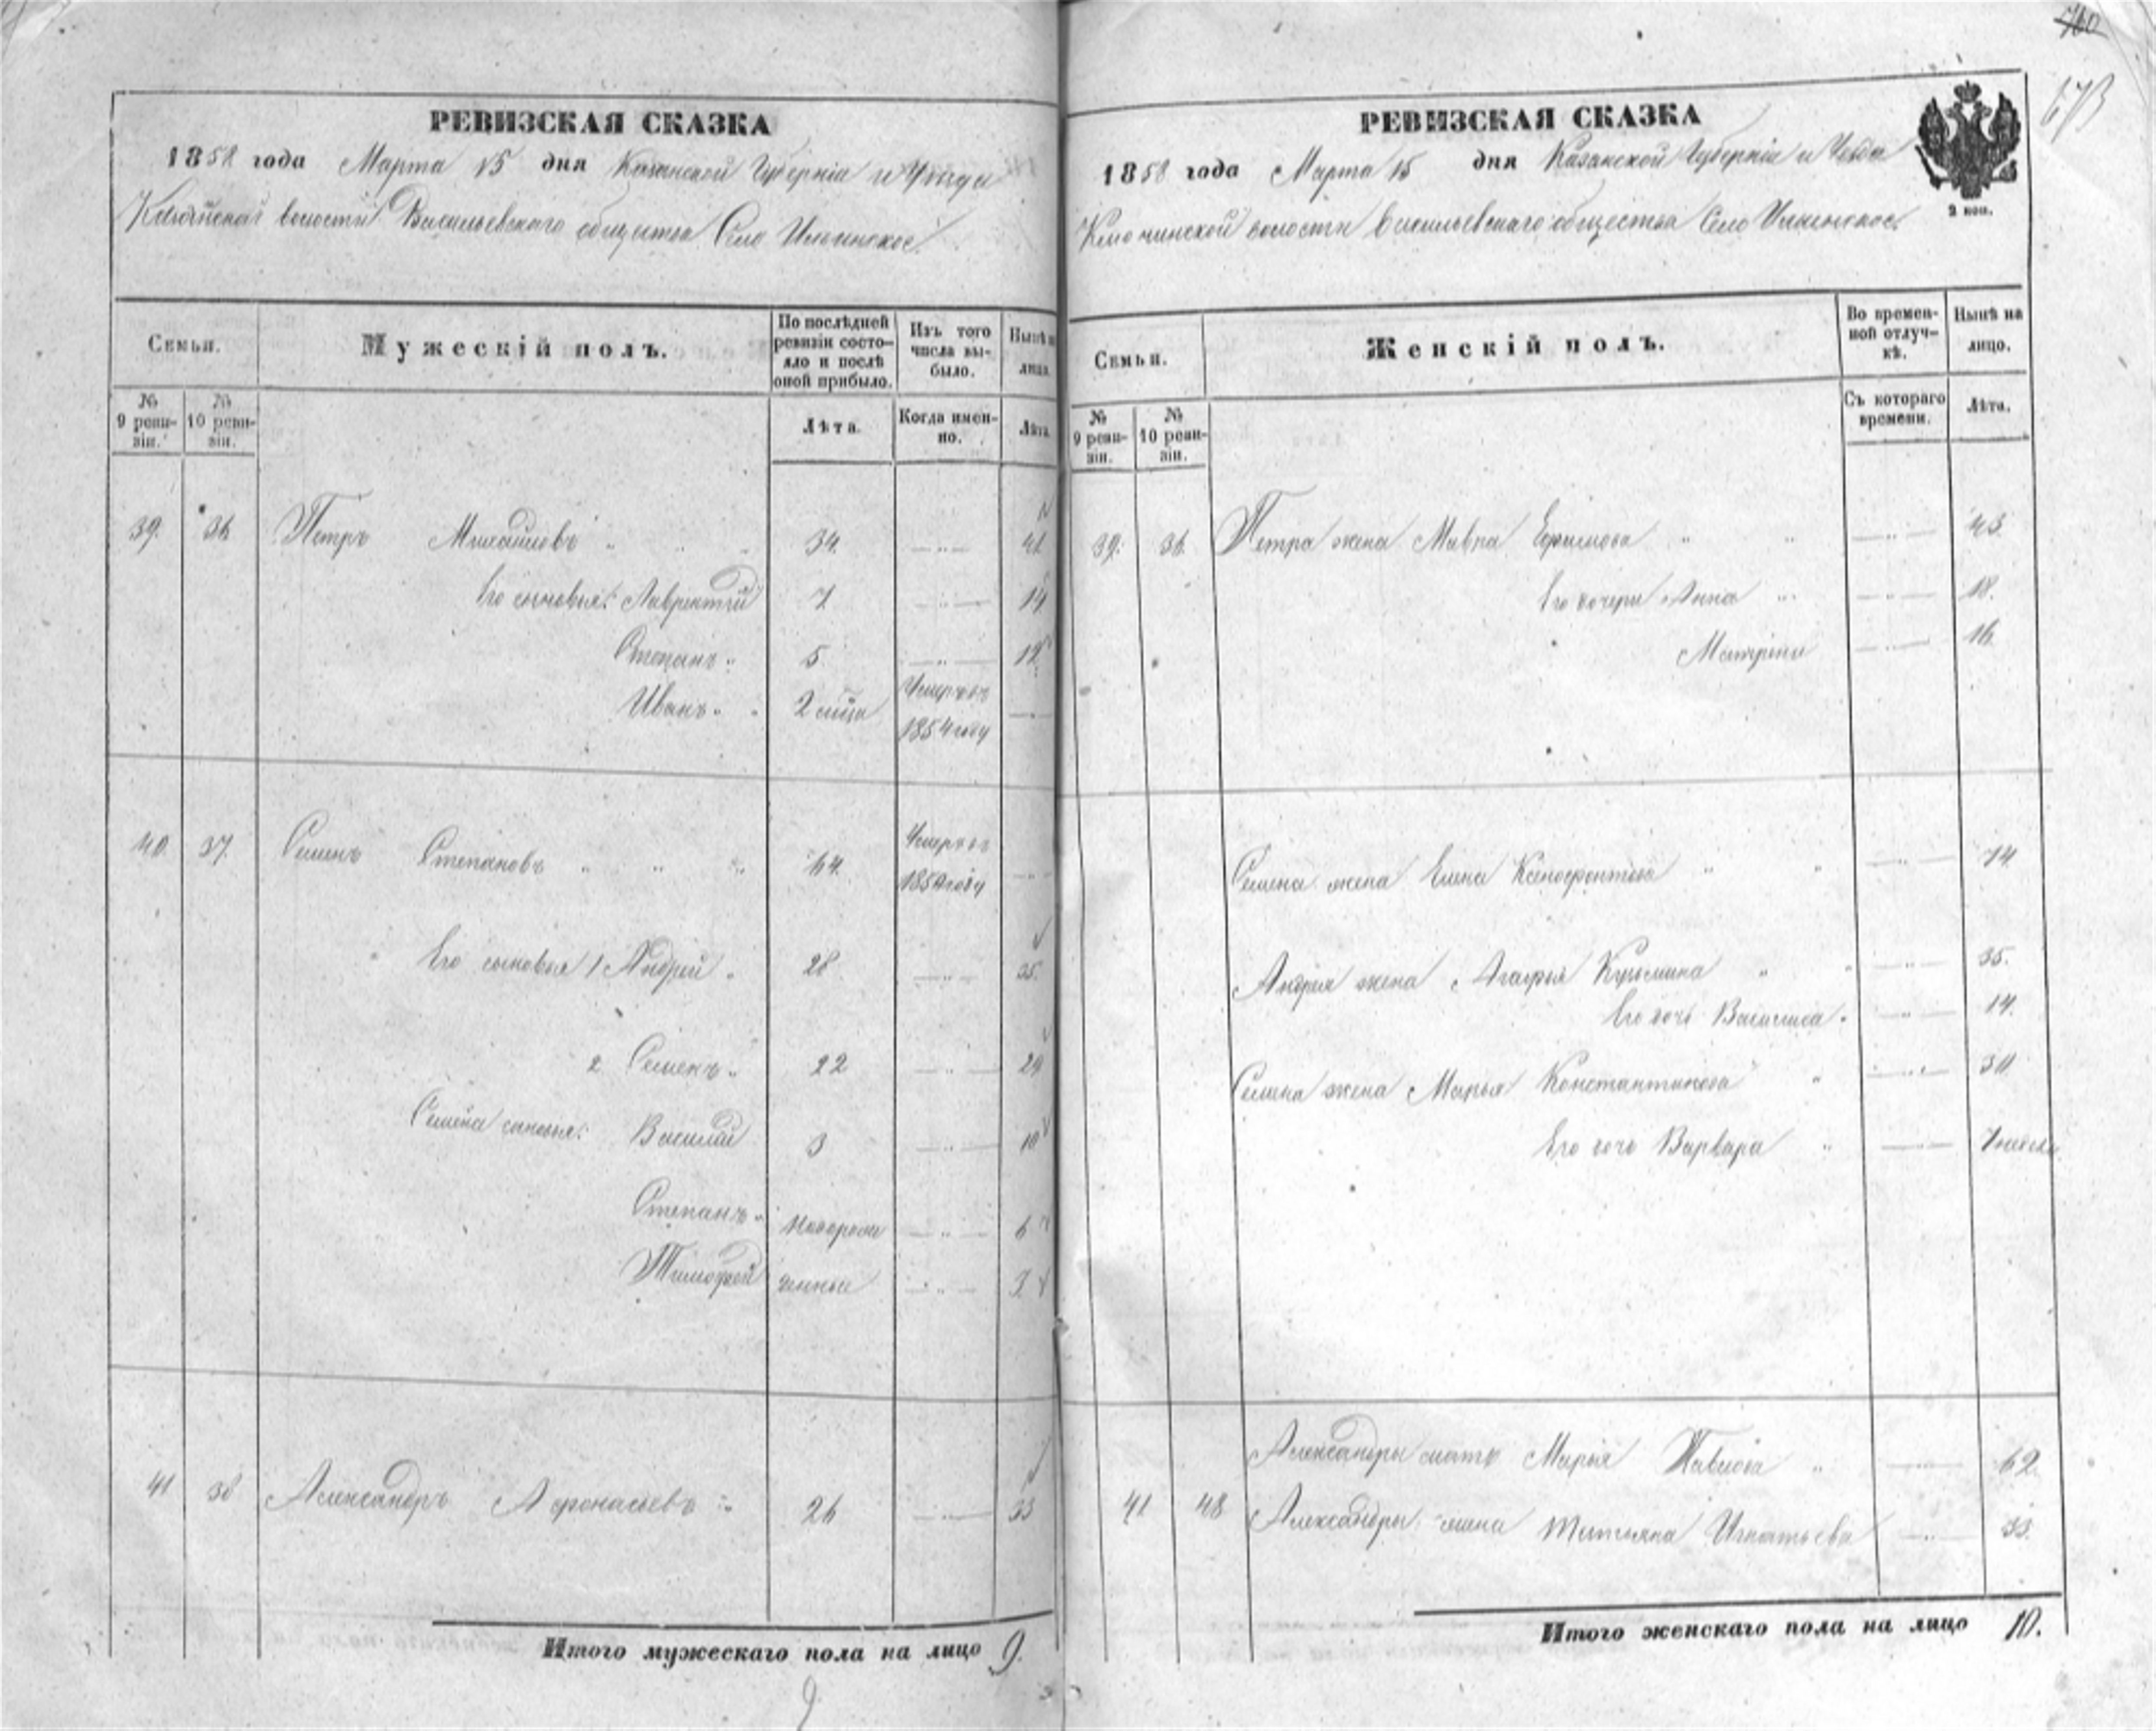 РЕВИЗСКАЯ СКАЗКА
1858 года Марта 15 дня Казанской Губерніи и Уѣзда
волости Васильевскаго общества Село Ильинское.
Семьи.
Мужескій полъ.
По послѣдней ревизіи состояло и послѣ оной прибыло.
Изъ того числа выбыло.
Нынѣ на лицо.
№ 9 ревизіи.
№ 10 ревизіи.
Лѣта.
Когда именно.
Лѣта.
39. 36 Петръ Михайловъ 34. 41
Его сыновья: Лаврентій 7 14
Степанъ 5. 12.
Иванъ 2 мѣсца Умеръ въ 1854 году
40 37. Семенъ Степановъ 64. Умеръ въ 1854 году
Его сыновья 1 Андрей 28 35.
2. Семенъ 22 29
Семена сыновья: Василій 3 10
Степанъ новорож 6
Тимофей денные 3.
41 38 Александръ Афонасьевъ 26 33
Итого мужескаго пола на лицо 9.
9
700
673
РЕВИЗСКАЯ СКАЗКА
1858 года Марта 15 дня Казанской Губерніи и Уѣзда
2 коп.
Ключинской волости Васильевскаго общества Село Ильинское.
Семьи.
Женскій полъ.
Во временной отлучкѣ.
Нынѣ на лицо.
№ 9 ревизіи.
№ 10 ревизіи.
Съ котораго времени.
Лѣта.
39. 36. Петра жена Мавра Ефимова 43
Его дочери Анна 18.
Матрена 16.
Семена жена Елена Ксенофонтова 74
Андрея жена Агафья Кузьмина 35.
Его дочь Василиса 14.
Семена жена Марья Константинова 30
Его дочь Варвара 7 недель
Александры мать Марья Павлова 62.
41 48 Александры жена Татьяна Игнатьева 33.
Итого женскаго пола на лицо 10.